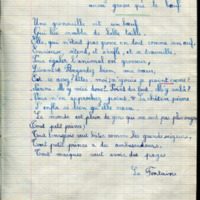 aussi grosse que le bœuf
Une grenouille vit un bœuf
Qui lui sembla de belle taille.
Elle, qui n'était pas grosse en tout comme un œuf,
Envieuse, s'étend, et s'enfle, et se travaille,
Pour égaler l'animal en grosseur,
Disant : Regardez bien, ma sœur,
Est-ce assez ? dites-moi n'y suis-je point encore ?
Nenni. M'y voici donc ? Point du tout. M'y voilà ?
Vous n'en approchez point. La chétive pécore
S'enfla si bien qu'elle creva.
Le monde est plein de gens qui ne sont pas plus sages
Tout bourgeois veut bâtir comme les grands seigneurs,
Tout petit prince a des ambassadeurs,
Tout marquis veut avoir des pages
La Fontaine